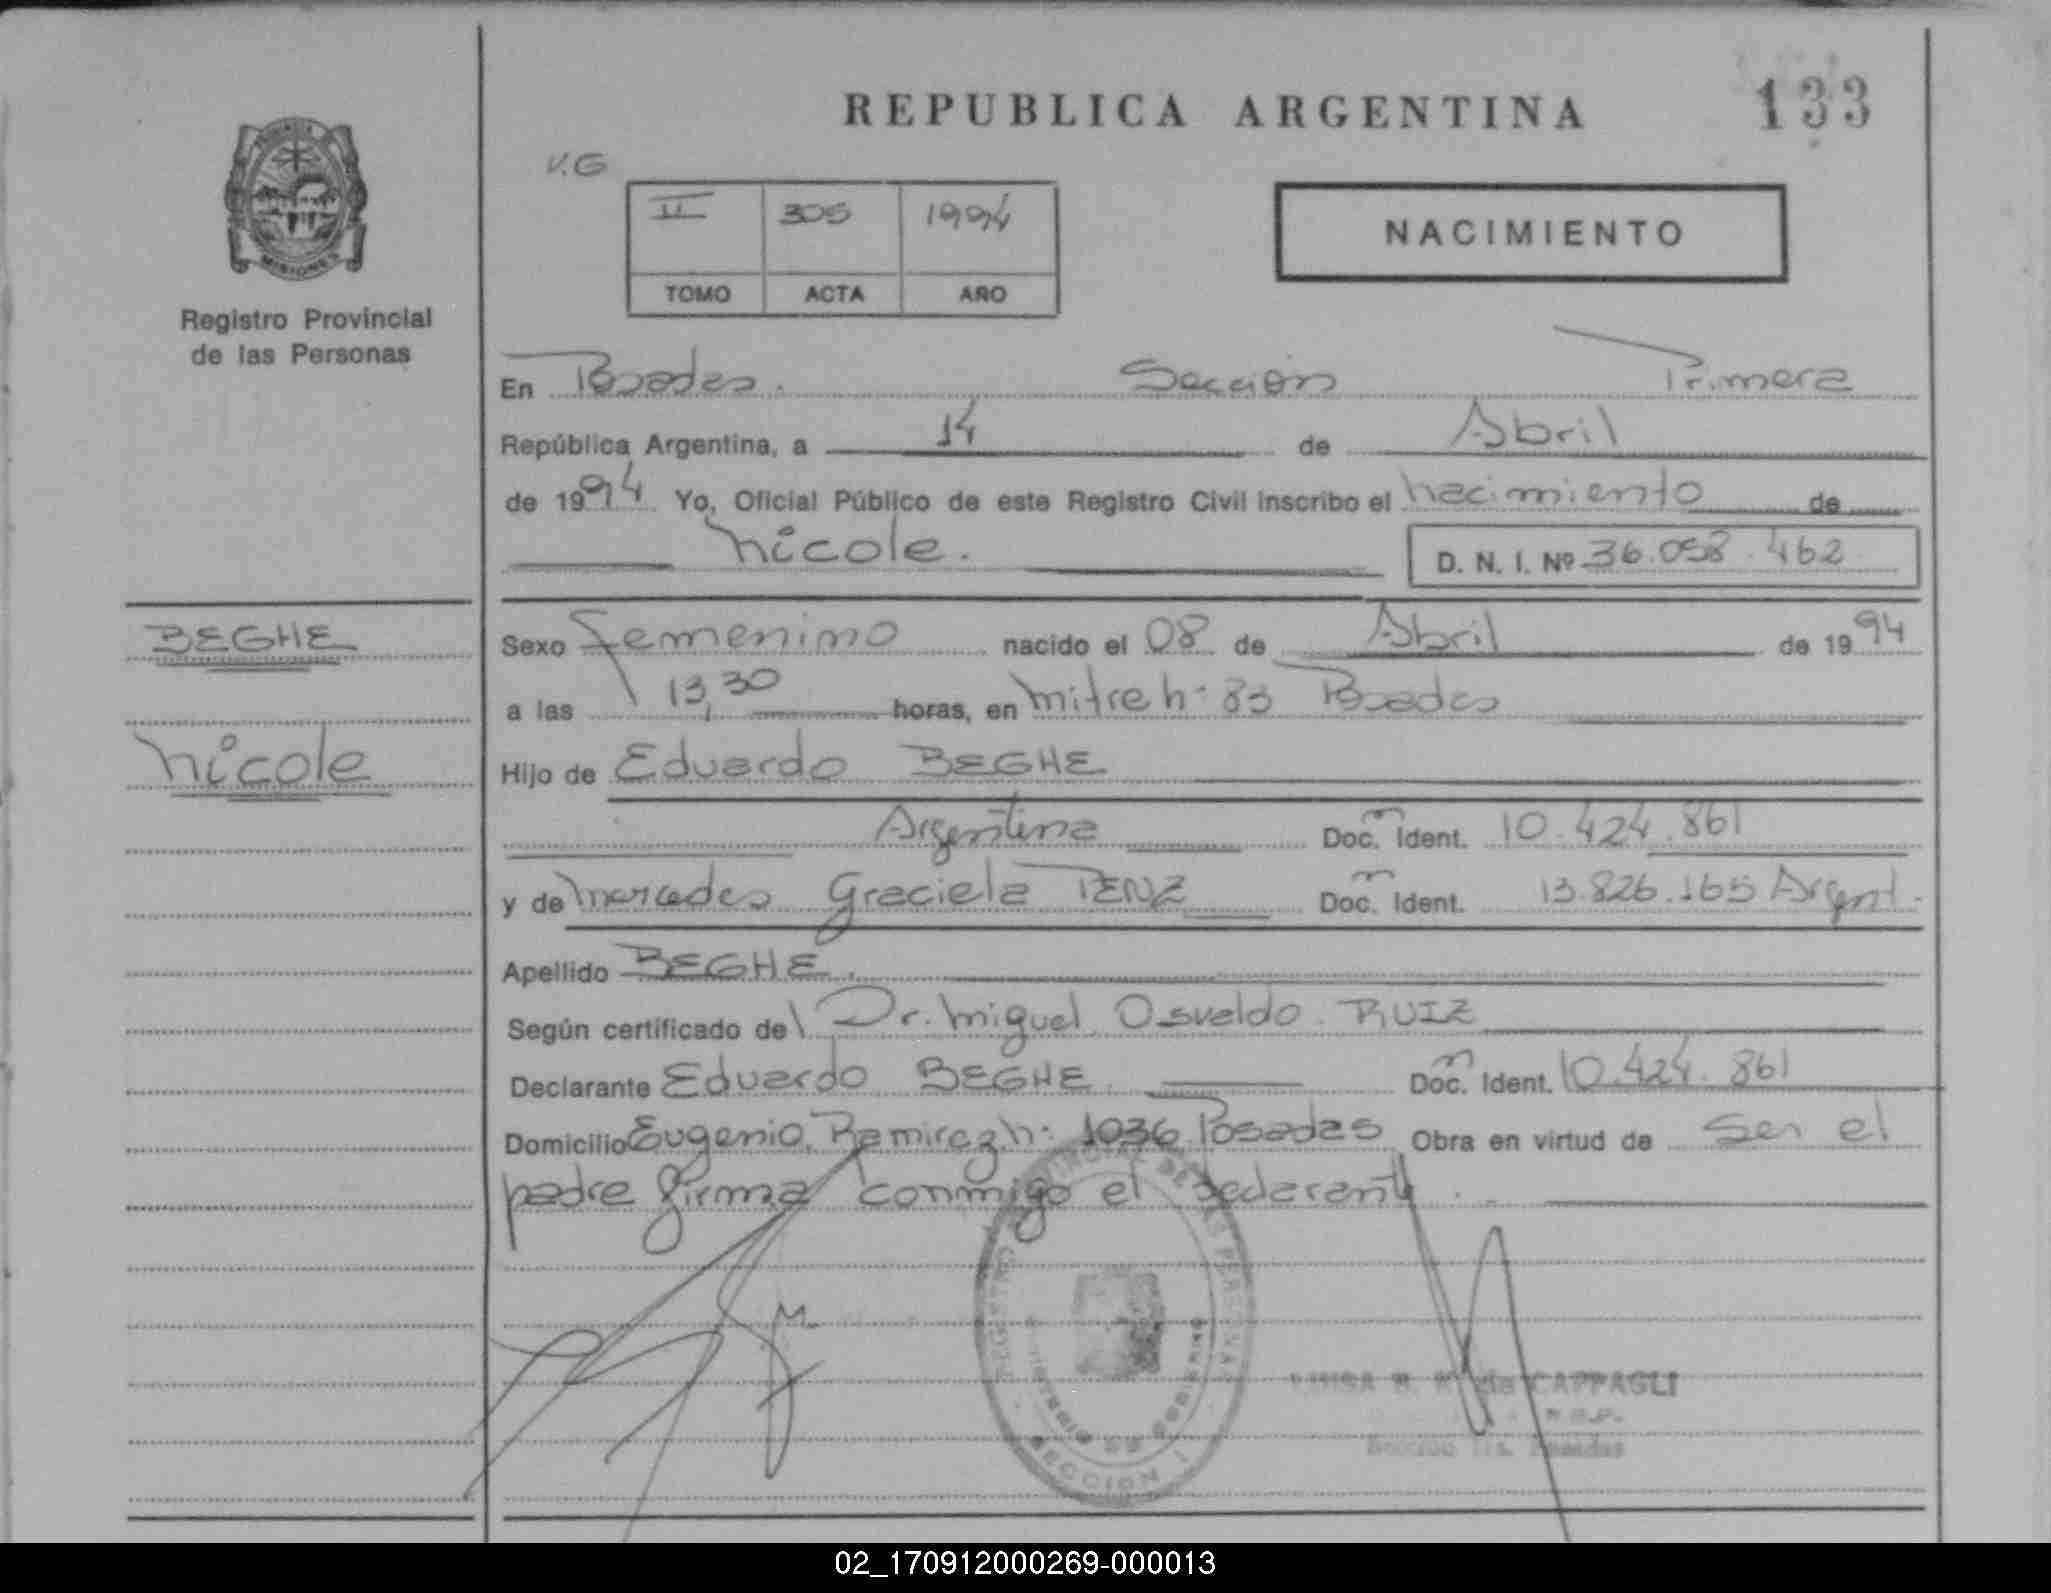 REPUBLICA ARGENTINA
133
V.G
II 305 1994
TOMO ACTA AÑO
NACIMIENTO
MISIONES
Registro Provincial
de las Personas
En Posadas. Sección Primera
República Argentina, a 14 de Abril
de 1994 Yo, Oficial Público de este Registro Civil inscribo el nacimiento de
nicole.
D. N. I. Nº 36.058.462
BEGHE
nicole
Sexo Femenino nacido el 08 de Abril de 1994
a las 13,30 horas, en mitre n: 83 Posadas
Hijo de Eduardo BEGHE
Argentina Doc. Ident. 10.424.861
y de mercedes Graciela PENZ Doc. Ident. 13.826.165 Argent.
Apellido BEGHE.
Según certificado del Dr. miguel Osvaldo RUIZ
Declarante Eduardo BEGHE Doc. Ident. 10.424.861
Domicilio Eugenio Ramirez n: 1036 Posadas Obra en virtud de Ser el
padre firma conmigo el declarante.
REGISTRO PROVINCIAL DE LAS PERSONAS
MINISTERIO DE GOBIERNO
SECCION 1
LUISA B. K. de CAPPAGLI
Sección 1ra. Posadas
02_170912000269-000013